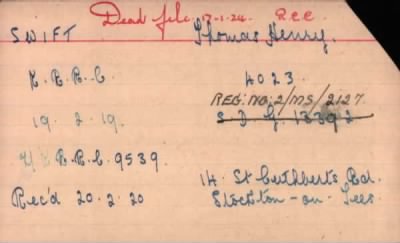 Dead file. 17-1-24. R.C.C.
SWIFT Thomas Henry.
K.R.R.C. 4023.
REG: NO: 2/MS/2127.
19. 2. 19. S D G. 13392
K.R.R.C. 9539.
14. St Cuthberts Rd.
Rec'd 20.2.20 Stockton-on-Tees.